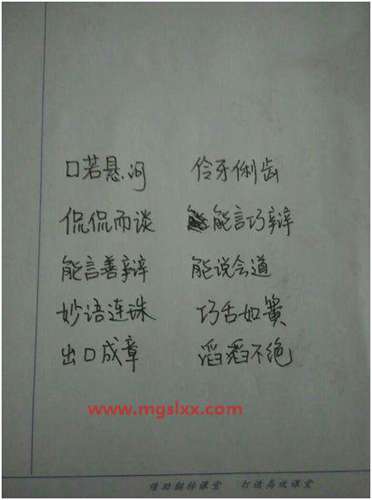 口若悬河 伶牙俐齿
侃侃而谈 能言巧辩
能言善辩 能说会道
妙语连珠 巧舌如簧
出口成章 滔滔不绝
www.mgslxx.com
借助翻转课堂 打造高效课堂